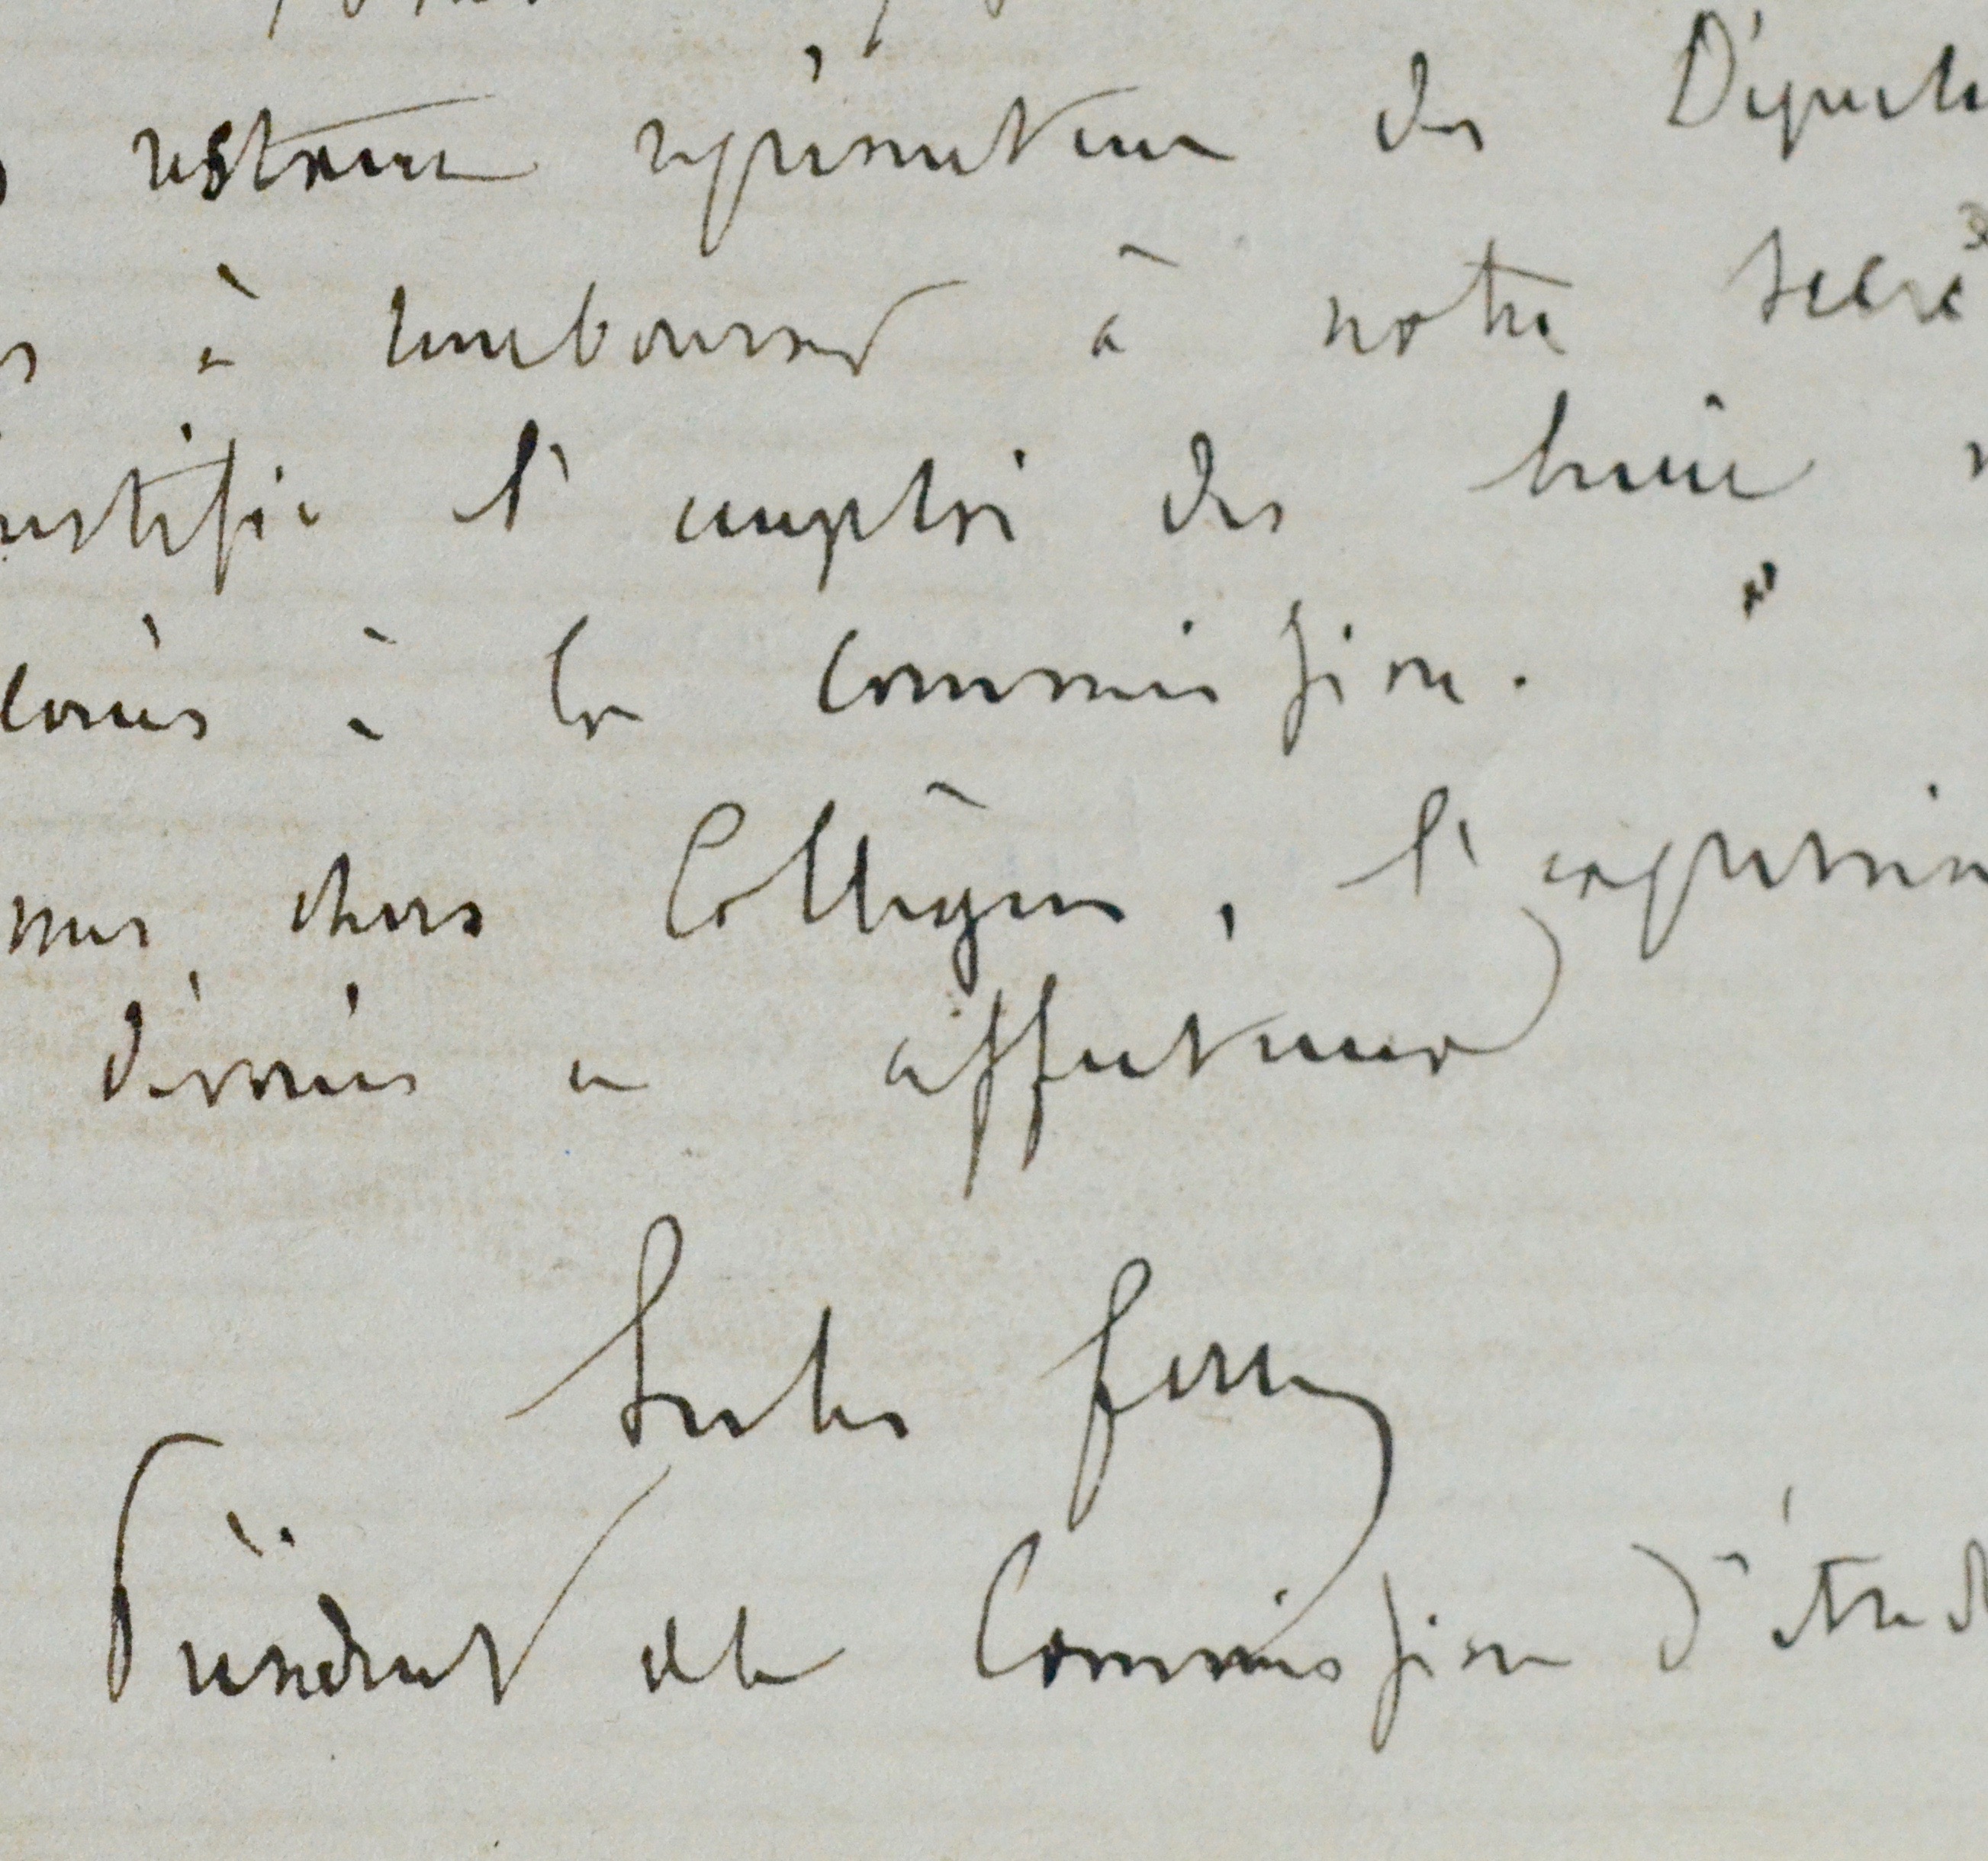 restrein représentan des Départe
à rembourser à notre secré
justifié l'emploi des huit
loués à la Commission.
mes chers Collègues, l'expression
dévoués et affectueux
Jules Ferry
Président de la Commission d'étude